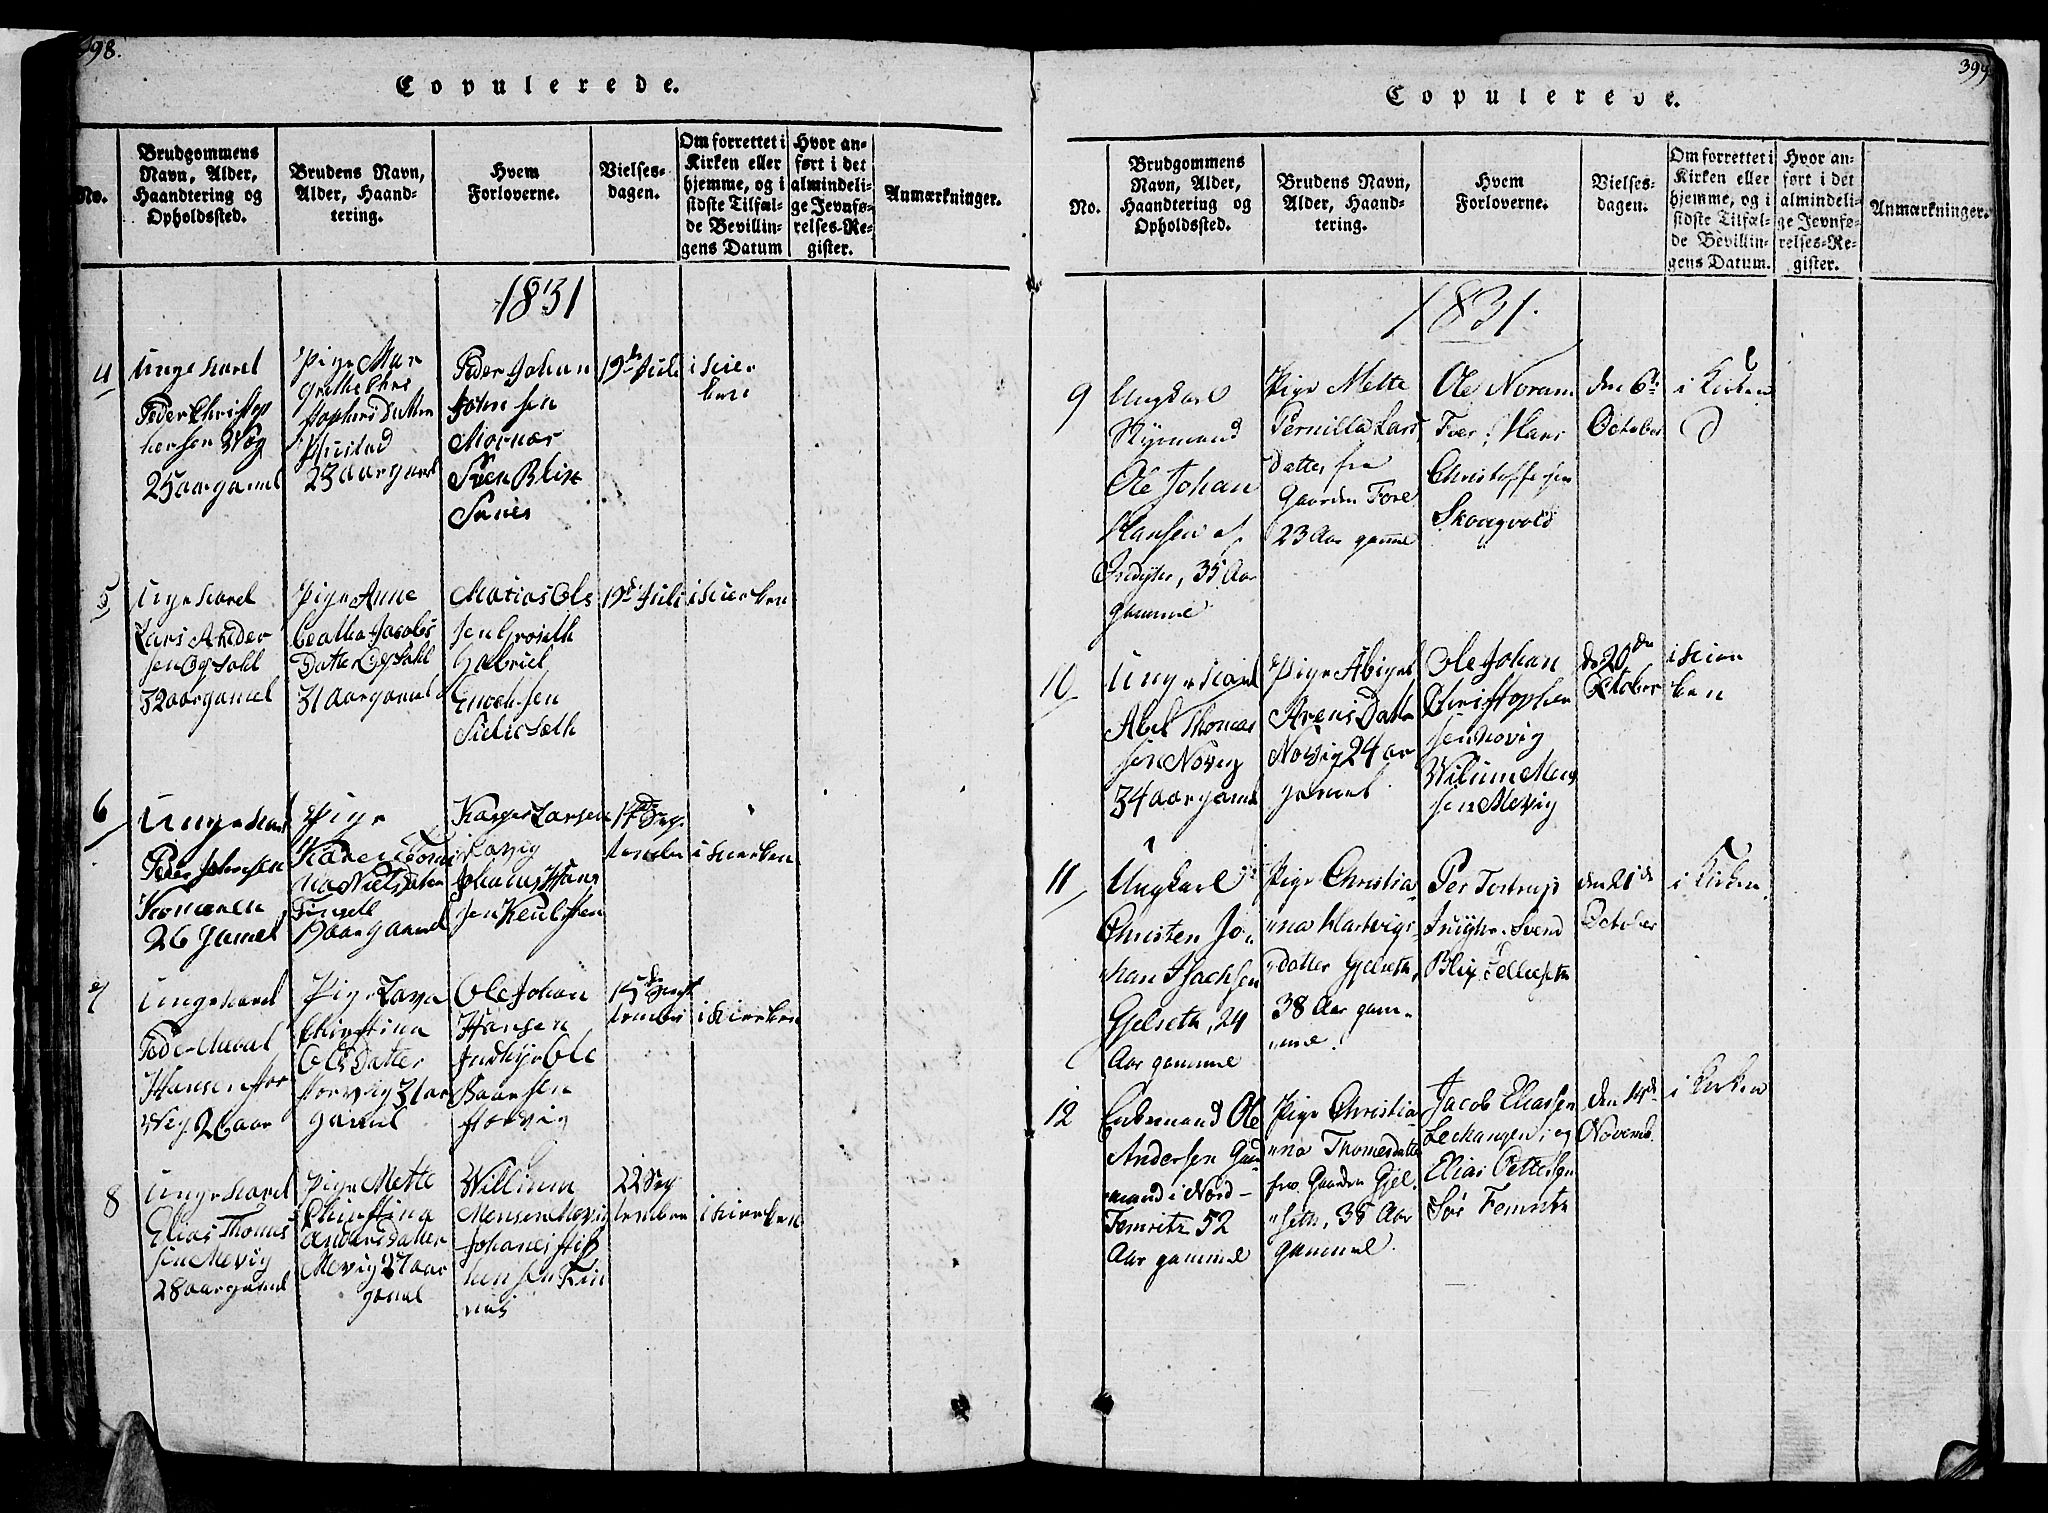 398.
Copulerede.
No.
Brudgommens
Navn, Alder,
Haandtering og
Opholdssted.
Brudens Navn,
Alder, Haand-
tering.
Hvem
Forloverne.
Vielses-
dagen.
Om forrettet i
Kirken eller
hjemme, og i
sidste Tilfæl-
de Bevillin-
gens Datum
Hvor an-
ført i det
almindeli-
ge Jevnfø-
relses-Re-
gister.
Anmærkninger.
1831
4
Unge Karel
Peder Christop
hersen Wog
25 aar gamel
Pige Mar
grethe Chris
stophers Datter
23 aar gamel
Peder Johan
Johnsen
Mornæs
Sven Blix
19de Juli
i Kier
ken
5
Unge Karel
Lars Ander
sen Ogsahl
32 aar gamel
Pige Anne
Beatha Jacobs
Datter Ogsahl
31 aar gamel
Matias Ols
sen Groseth
Gabriel
Enochsen
19de Juli
i Kierken
6
Unge Karel
Peder Johnsen
26 gamel
Pige
Karen
Niels Daten
aar gamel
Kasper Larsen
Johanes Hans
sen
14de Sep
tember
i Kierken
7
Unge Karel
Peder
Hansen Stor
Wig 26 aar
Pige Lava
Christina
Ols Datter
Storvig 31 aar
gamel
Ole Johan
Hansen
Indhyr Ole
Baarsen
Storvig
15de Sept
tember
i Kierken
8
Unge Karel
Elias Thomes
sen Mevig
28 aar gamel
Pige Mette
Christina
Anders Datter
Mevig 27 aar
gamel
Willium
Mensen Mevig
Johanes Stif
hensen
22 Sep
tember
i Kierken
399
Copulerede.
No.
Brudgommens
Navn, Alder,
Haandtering og
Opholdssted.
Brudens Navn,
Alder, Haand-
tering.
Hvem
Forloverne.
Vielses-
dagen.
Om forrettet i
Kirken eller
hjemme, og i
sidste Tilfæl-
de Bevillin-
gens Datum.
Hvor an-
ført i det
almindeli-
ge Jevnfø-
relses-Re-
gister.
Anmærkninger.
1831.
9
Ungkarl
Styrmand
Ole Johan
Hansen af
Indyhr, 35 Aar
gammel
Pige Mette
Pernilla Lars
Datter fra
Gaarden Fore
23 Aar gamle
Ole Noram
Fore, Hans
Christoffersen
Skoegvold
den 6te
October
i Kirken
10
Unge Karel
Abel Thomas
sen Novig
34 aar gamel
Pige Abigel
Arens Dater
Novig 24 aar
gamel
Ole Johan
Christopher
sen Novig
Wilium Mens
sen Mevig
de 20de
October
i Kier
ken
11
Ungkarl
Christen Jo-
han Isachsen
Gjelseth, 24
Aar gammel
Pige Christia
na Hartvigs-
Datter Gjelseth,
38 Aar gam-
mel.
Per Tostrup
Indyhr. Svend
Blix Selleseth
den 21de
October
i Kirken.
12
Enkemand Ole
Andersen Gaa
mand i Nord-
Femritz 52
Aar gammel
Pige Christia-
na Thomesdatter
fra Gaarden Gjel-
seth, 38 Aar
gammel.
Jacob Eliassen
Leckangen, og
Elias Pettersen
Sør Femritz
den 14de
Novemb.
i Kirken